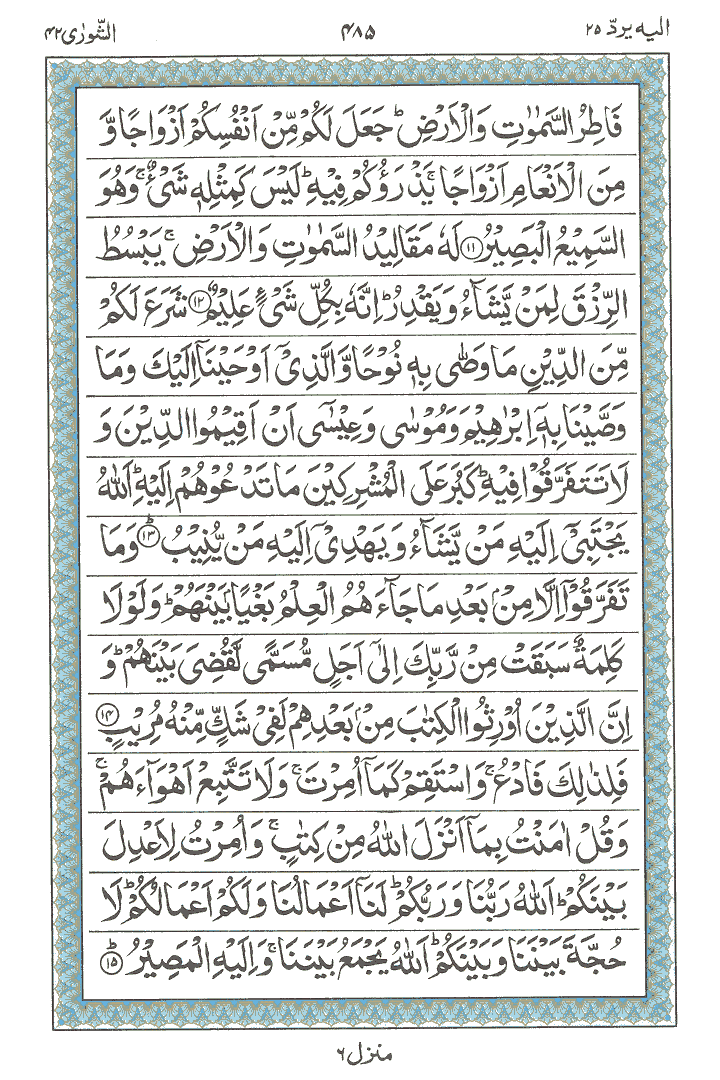 الیه یردّ ۲۵
۴۸۵
الشّورٰی ۴۲
فَاطِرُ السَّمٰوٰتِ وَالْاَرْضِ ؕ جَعَلَ لَكُمْ مِّنْ اَنْفُسِكُمْ اَزْوَاجًا وَّ
مِنَ الْاَنْعَامِ اَزْوَاجًا ۚ يَذْرَؤُكُمْ فِيْهِ ؕ لَيْسَ كَمِثْلِهٖ شَىْءٌ ۚ وَهُوَ
السَّمِيْعُ الْبَصِيْرُ ۝۱۱ لَهٗ مَقَالِيْدُ السَّمٰوٰتِ وَالْاَرْضِ ۚ يَبْسُطُ
الرِّزْقَ لِمَنْ يَّشَآءُ وَيَقْدِرُ ؕ اِنَّهٗ بِكُلِّ شَىْءٍ عَلِيْمٌ ۝۱۲ شَرَعَ لَكُمْ
مِّنَ الدِّيْنِ مَا وَصّٰى بِهٖ نُوْحًا وَّالَّذِىْۤ اَوْحَيْنَاۤ اِلَيْكَ وَمَا
وَصَّيْنَا بِهٖۤ اِبْرٰهِيْمَ وَمُوْسٰى وَعِيْسٰٓى اَنْ اَقِيْمُوا الدِّيْنَ وَ
لَا تَتَفَرَّقُوْا فِيْهِ ؕ كَبُرَ عَلَى الْمُشْرِكِيْنَ مَا تَدْعُوْهُمْ اِلَيْهِ ؕ اَللّٰهُ
يَجْتَبِىْۤ اِلَيْهِ مَنْ يَّشَآءُ وَيَهْدِىْۤ اِلَيْهِ مَنْ يُّنِيْبُ ؕ۝۱۳ وَمَا
تَفَرَّقُوْۤا اِلَّا مِنْۢ بَعْدِ مَا جَآءَهُمُ الْعِلْمُ بَغْيًۢا بَيْنَهُمْ ؕ وَلَوْلَا
كَلِمَةٌ سَبَقَتْ مِنْ رَّبِّكَ اِلٰٓى اَجَلٍ مُّسَمًّى لَّقُضِىَ بَيْنَهُمْ ؕ وَ
اِنَّ الَّذِيْنَ اُوْرِثُوا الْكِتٰبَ مِنْۢ بَعْدِهِمْ لَفِىْ شَكٍّ مِّنْهُ مُرِيْبٍ ۝۱۴
فَلِذٰلِكَ فَادْعُ ۚ وَاسْتَقِمْ كَمَاۤ اُمِرْتَ ۚ وَلَا تَتَّبِعْ اَهْوَآءَهُمْ ۚ
وَقُلْ اٰمَنْتُ بِمَاۤ اَنْزَلَ اللّٰهُ مِنْ كِتٰبٍ ۚ وَاُمِرْتُ لِاَعْدِلَ
بَيْنَكُمْ ؕ اَللّٰهُ رَبُّنَا وَرَبُّكُمْ ؕ لَنَاۤ اَعْمَالُنَا وَلَكُمْ اَعْمَالُكُمْ ؕ لَا
حُجَّةَ بَيْنَنَا وَبَيْنَكُمْ ؕ اَللّٰهُ يَجْمَعُ بَيْنَنَا ۚ وَاِلَيْهِ الْمَصِيْرُ ؕ۝۱۵
منزل ۶